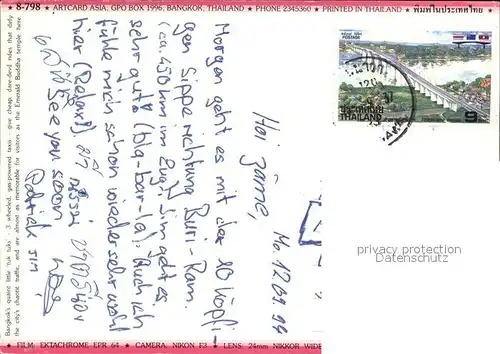 8-798 ★ ARTCARD ASIA, GPO BOX 1996, BANGKOK, THAILAND ★ PHONE 2345360 ★ PRINTED IN THAILAND ★ พิมพ์ในประเทศไทย
Bangkok's quaint little 'tuk tuks' - 3 wheeled, gas-powered taxis - give cheap, dare-devil rides that defy
the city's chaotic traffic, and are almost as memorable for visitors as the Emerald Buddha temple here.
Mo. 12.09.94
Hoi zäme,
Morgen geht es mit der 10 köpfi-
gen Sippe richtung Buri-Ram.
(ca. 450 km im Zug). Jim geht es
sehr gut (bla-bar-la). Auch ich
fühle mich schon wieder sehr wohl
hier (Relax!).
See you soon
Patrick Jim
POSTAGE
ประเทศไทย
THAILAND
9
privacy protection
★ FILM: EKTACHROME EPR 64 ★ CAMERA: NIKON F3 ★ LENS: 24mm NIKKOR WIDE